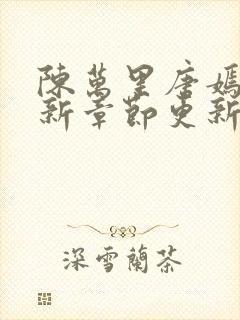 陳萬里唐嫣
新章節更新
深雪蘭茶